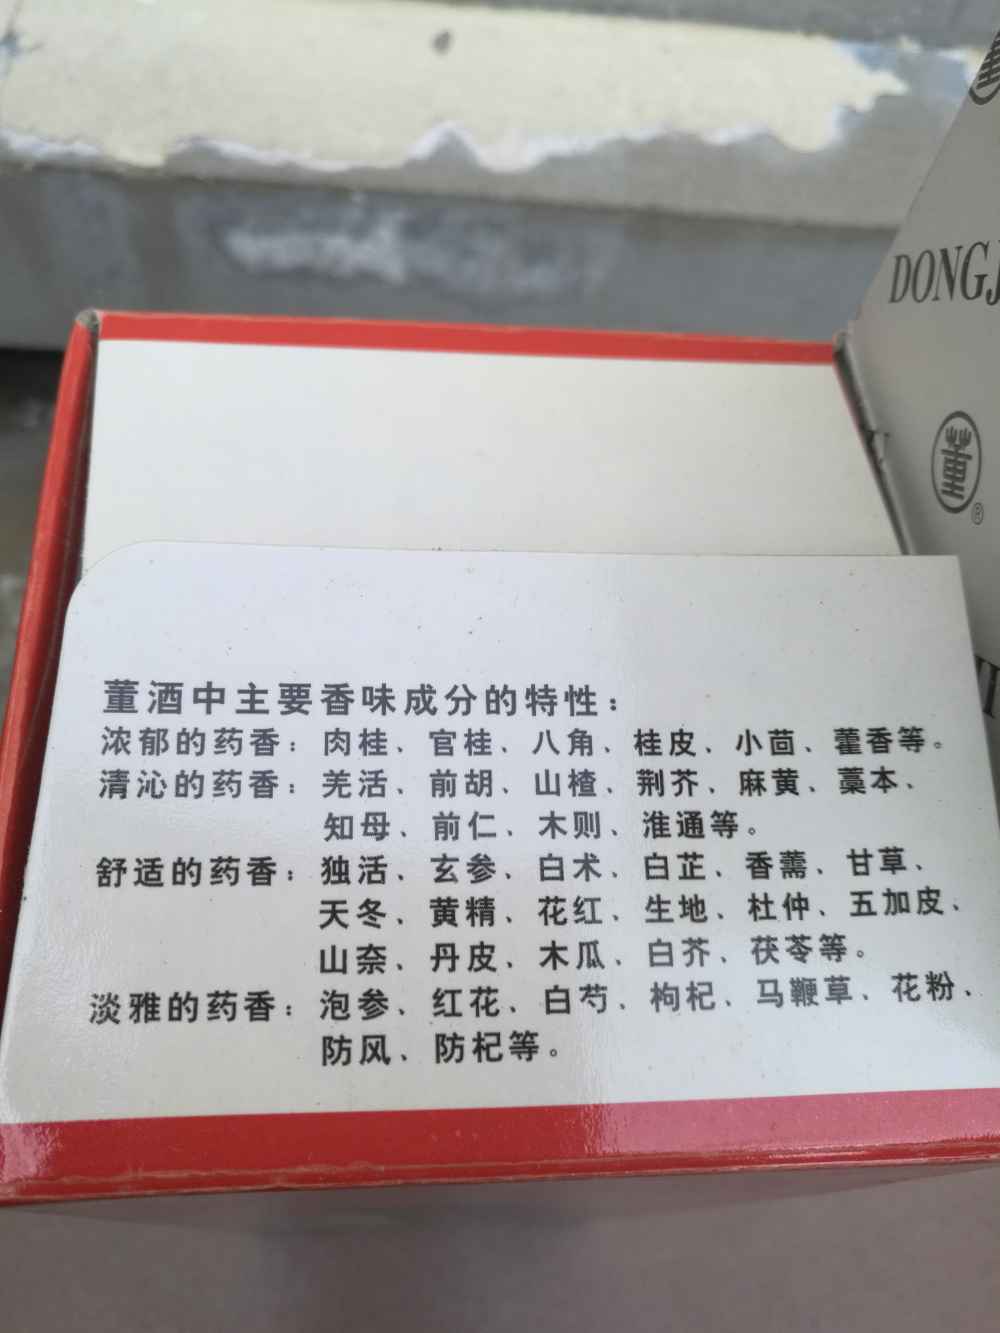 DONGJ
董
®
董酒中主要香味成分的特性：
浓郁的药香：肉桂、官桂、八角、桂皮、小茴、藿香等。
清沁的药香：羌活、前胡、山楂、荆芥、麻黄、藁本、
知母、前仁、木则、淮通等。
舒适的药香：独活、玄参、白术、白芷、香薷、甘草、
天冬、黄精、花红、生地、杜仲、五加皮、
山奈、丹皮、木瓜、白芥、茯苓等。
淡雅的药香：泡参、红花、白芍、枸杞、马鞭草、花粉、
防风、防杞等。